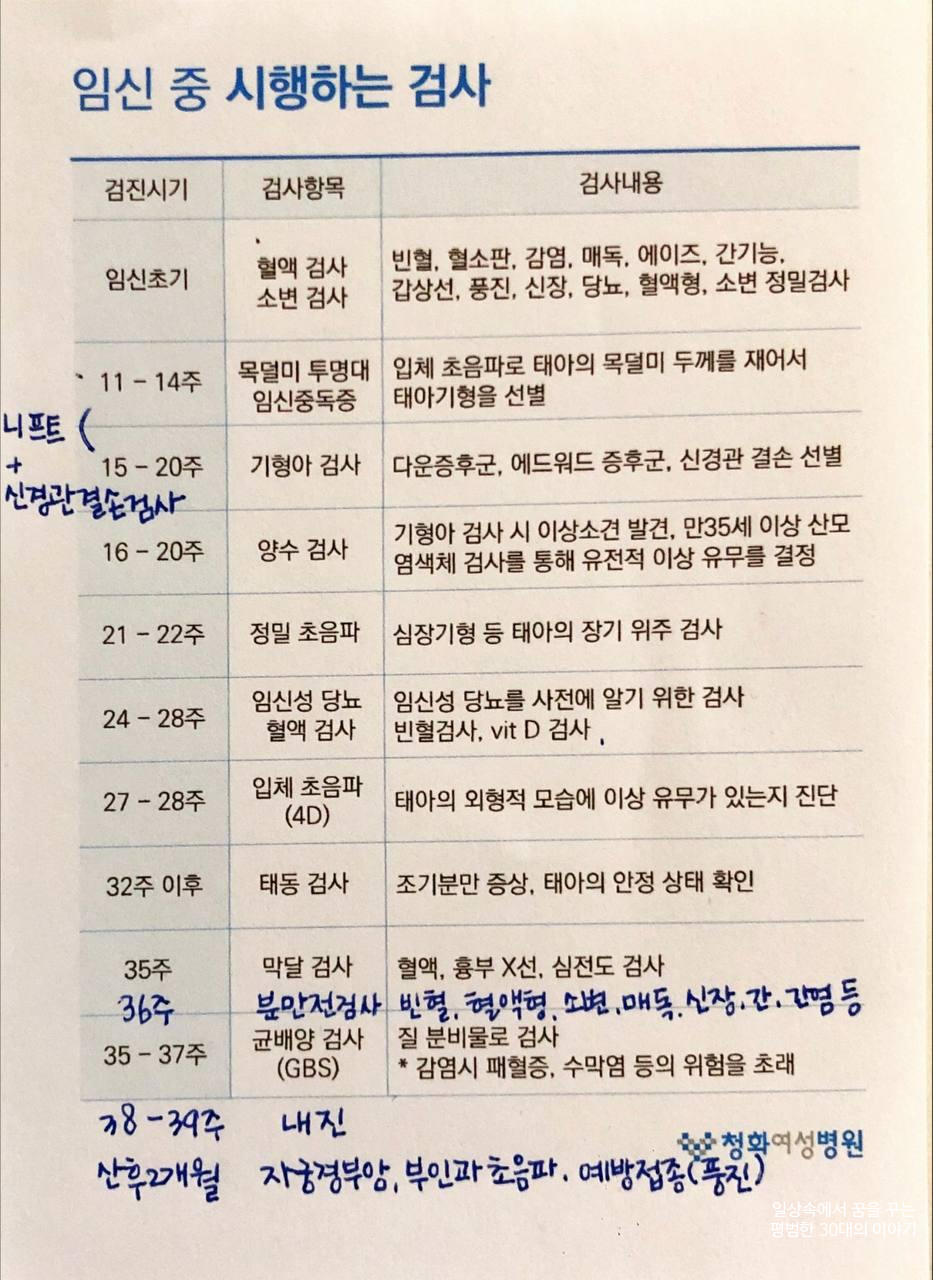 임신 중 시행하는 검사
검진시기 검사항목 검사내용
임신초기
혈액 검사
소변 검사
빈혈, 혈소판, 감염, 매독, 에이즈, 간기능,
갑상선, 풍진, 신장, 당뇨, 혈액형, 소변 정밀검사
11 – 14주
목덜미 투명대
임신중독증
입체 초음파로 태아의 목덜미 두께를 재어서
태아기형을 선별
니프트 (
+
신경관결손검사
15 – 20주 기형아 검사 다운증후군, 에드워드 증후군, 신경관 결손 선별
16 – 20주 양수 검사
기형아 검사 시 이상소견 발견, 만35세 이상 산모
염색체 검사를 통해 유전적 이상 유무를 결정
21 – 22주 정밀 초음파 심장기형 등 태아의 장기 위주 검사
24 – 28주
임신성 당뇨
혈액 검사
임신성 당뇨를 사전에 알기 위한 검사
빈혈검사, vit D 검사
27 – 28주
입체 초음파
(4D)
태아의 외형적 모습에 이상 유무가 있는지 진단
32주 이후 태동 검사 조기분만 증상, 태아의 안정 상태 확인
35주 막달 검사 혈액, 흉부 X선, 심전도 검사
36주 분만전검사 빈혈, 혈액형, 소변, 매독, 신장, 간, 간염 등
35 – 37주
균배양 검사
(GBS)
질 분비물로 검사
* 감염시 패혈증, 수막염 등의 위험을 초래
38-39주 내진
청화여성병원
산후2개월 자궁경부암, 부인과 초음파. 예방접종(풍진)
일상속에서 꿈을 꾸는
평범한 30대의 이야기